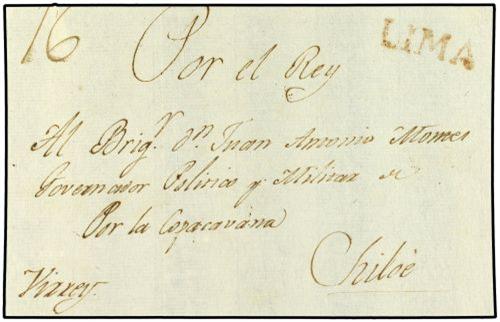 16
LIMA
Por el Rey
Al Brigr. dn. Juan Antonio Montes
Governador Politico y Militar de
Por la Copacavana
Chiloè
Virrey.